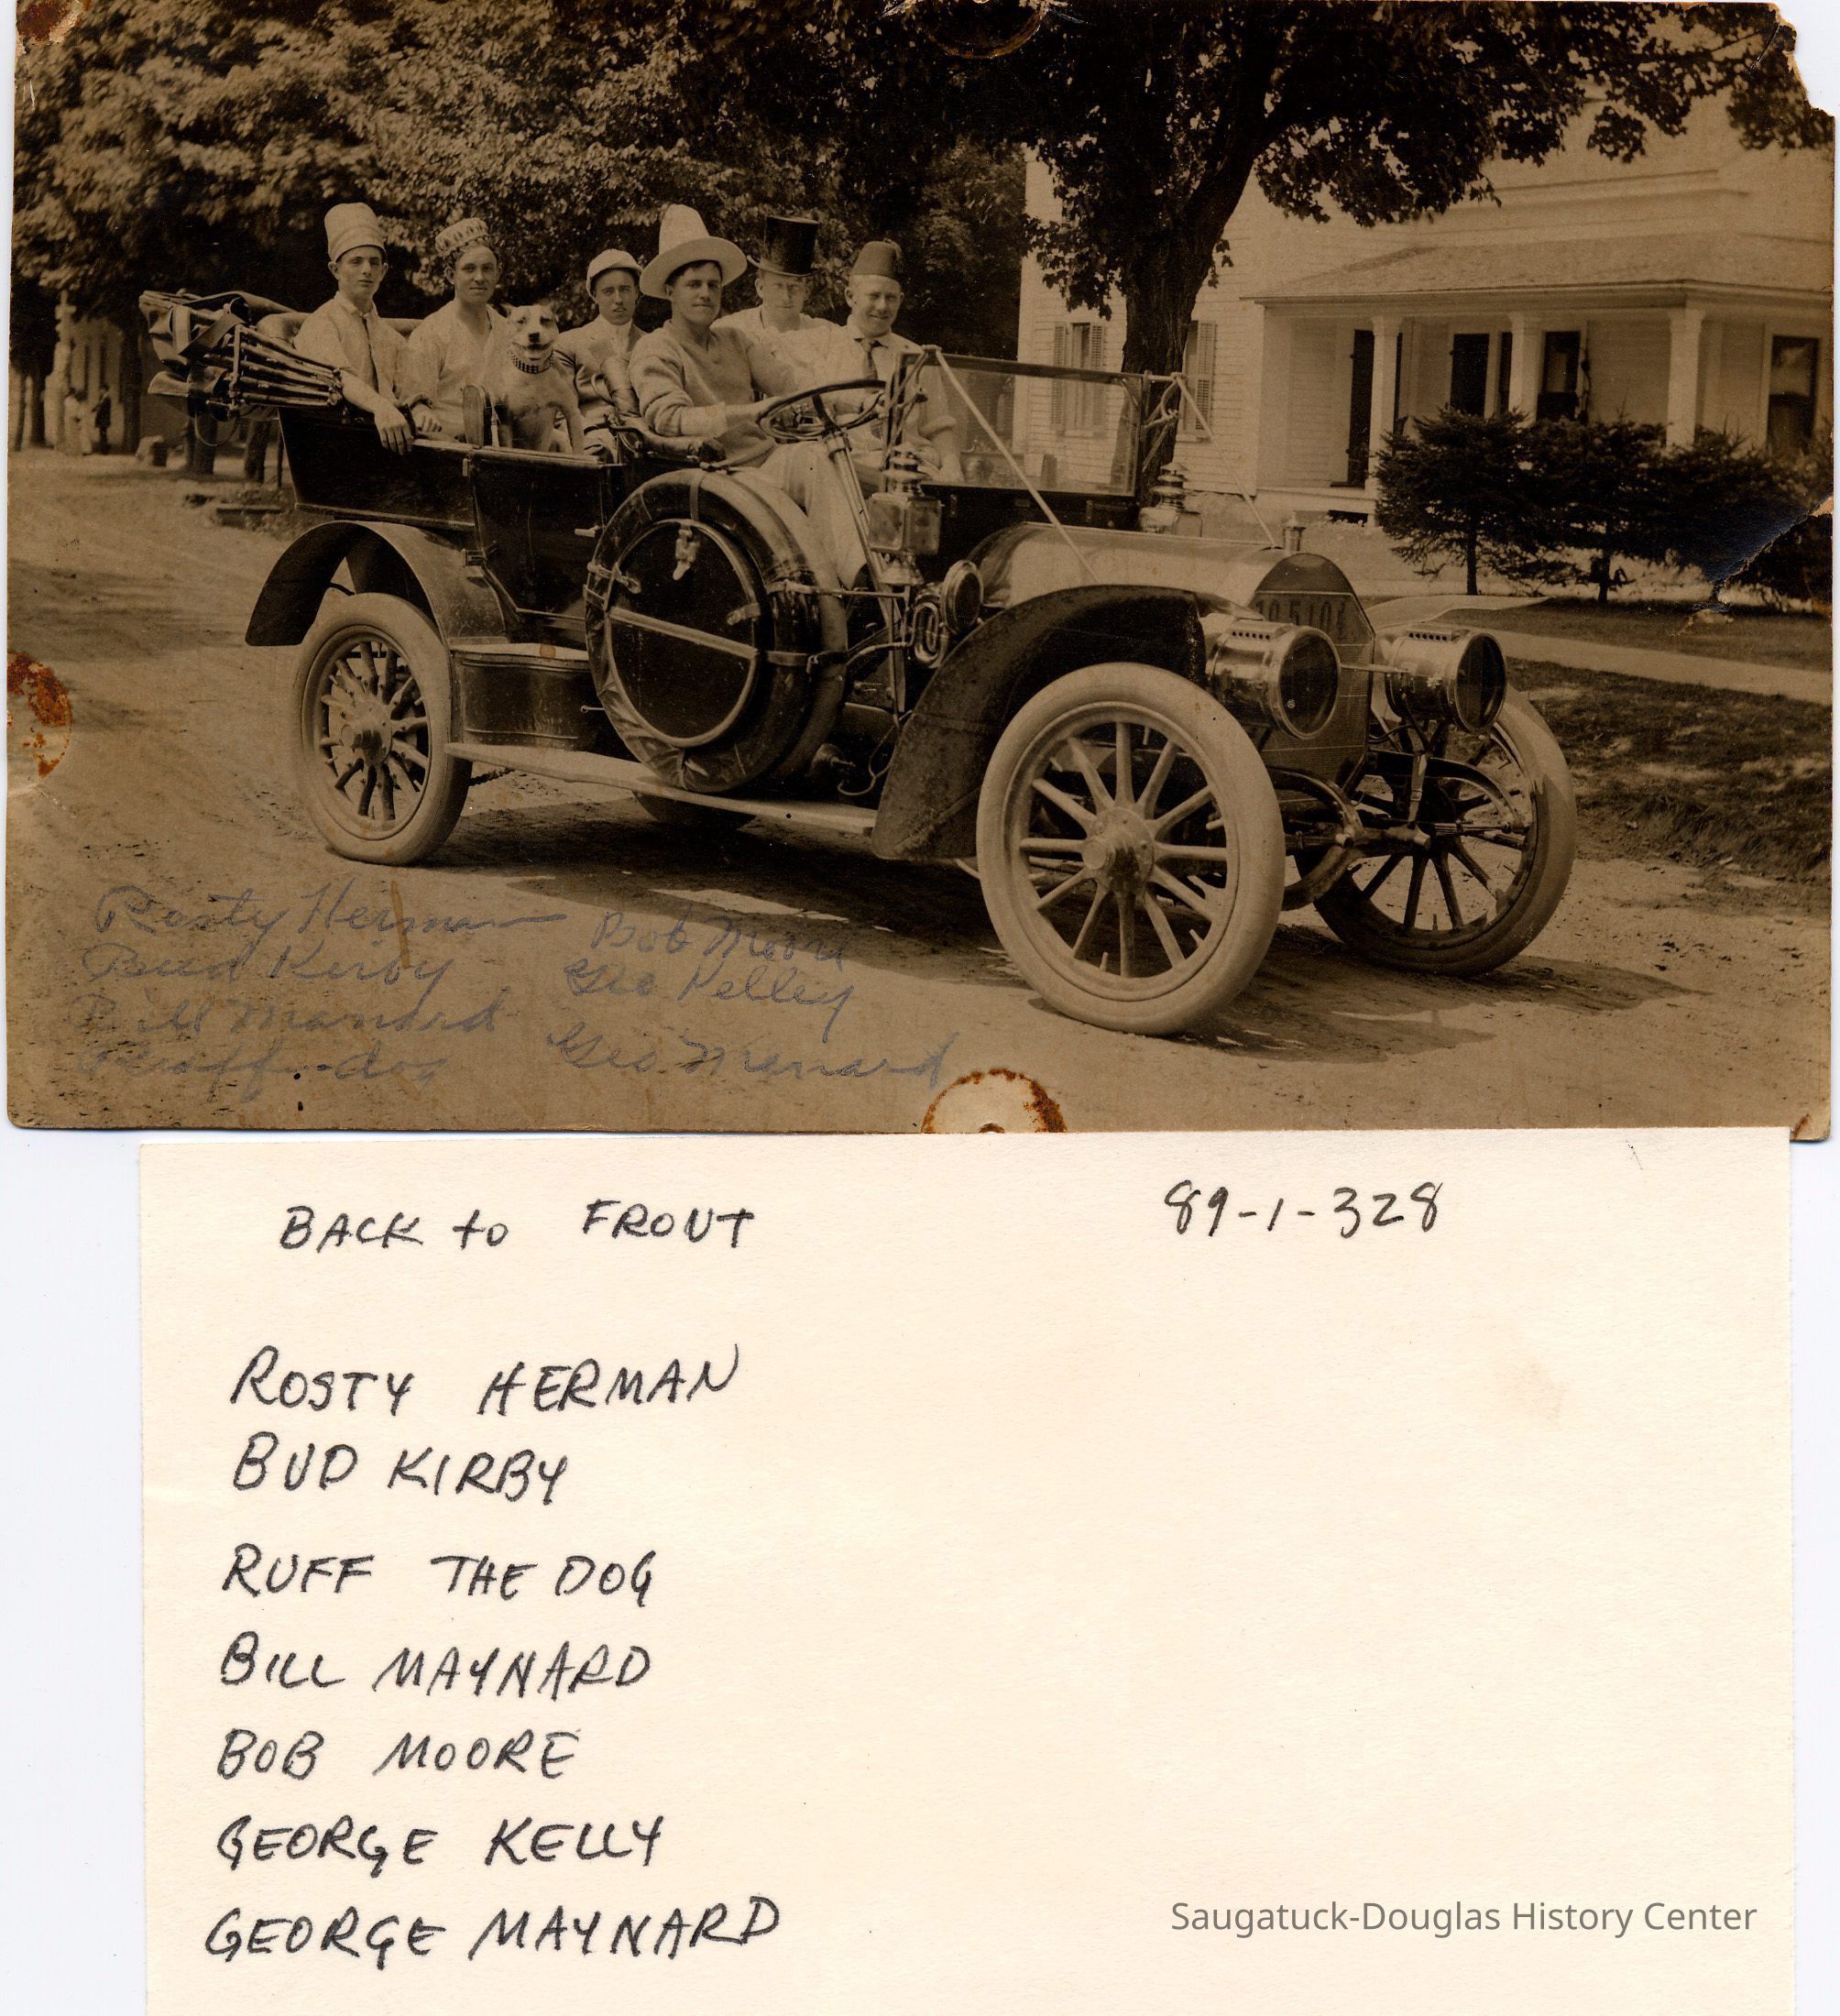 Rosty Herman
Bud Kirby
Bill Manard
Ruff - dog
Bob Moore
Geo Kelley
Geo. Menard
BACK to FRONT
89-1-328
ROSTY HERMAN
BUD KIRBY
RUFF THE DOG
BILL MAYNARD
BOB MOORE
GEORGE KELLY
GEORGE MAYNARD
Saugatuck-Douglas History Center